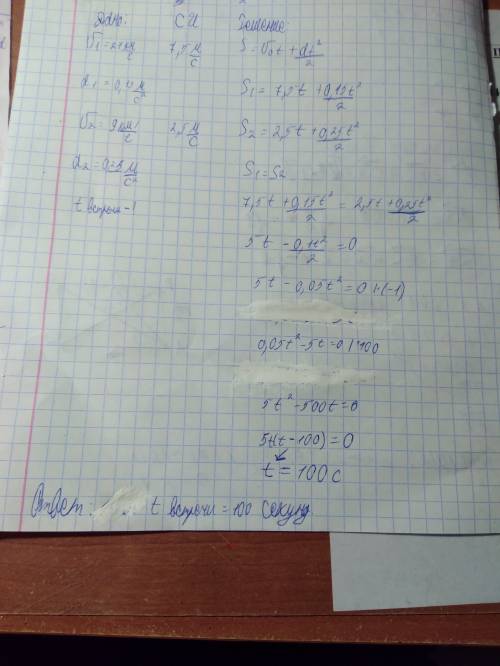 Дано: СИ Решение:
V1 = 27 км/ч 7,5 м/с S = V0t + at²/2
a1 = 0,15 м/с² S1 = 7,5t + 0,15t²/2
V2 = 9 км/ч 2,5 м/с S2 = 2,5t + 0,25t²/2
a2 = 0,25 м/с² S1 = S2
t встречи - ? 7,5t + 0,15t²/2 = 2,5t + 0,25t²/2
5t - 0,1t²/2 = 0
5t - 0,05t² = 0 |·(-1)
0,05t² - 5t = 0 | *100
5t² - 500t = 0
5t(t - 100) = 0
t = 100 с
Ответ: t встречи = 100 секунд